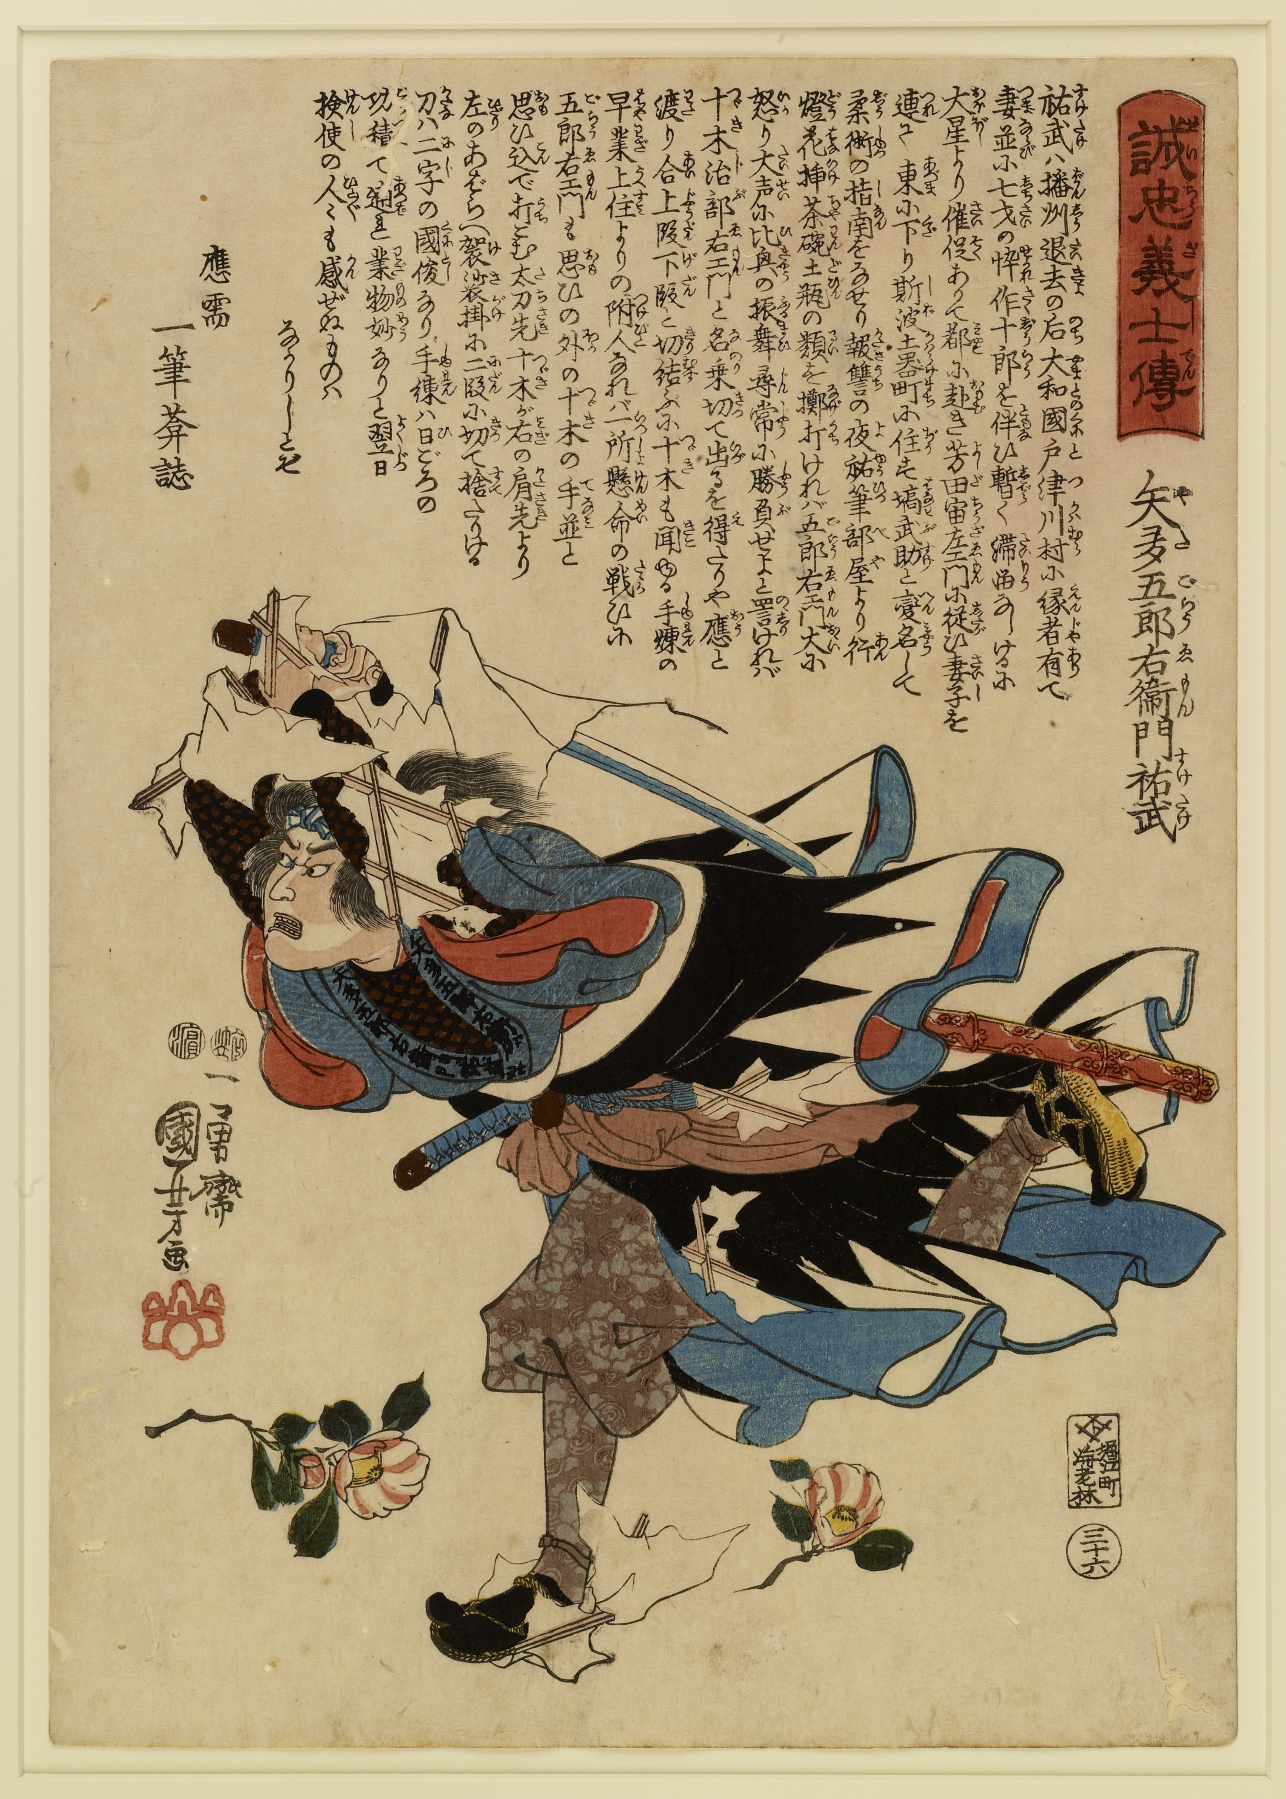 誠忠義士傳
矢多五郎右衞門祐武
祐武ハ播州退去の后大和國戸津川村に縁者有て
妻並に七才の悴作十郎を伴ひ暫く滞留なしけるに
大星より催促ありて都に赴き芳田宙左エ門に従ひ妻子を
連て東に下り斯波土器町に住す塙武助と変名して
柔術の指南をなせり報讐の夜祐筆部屋より行
燈花挿茶碗土瓶の類を擲打けれバ五郎右エ門大に
怒り大声に比興の振舞尋常に勝負せよと詈けれバ
十木治部右エ門と名乗切て出るを得たりや應と
渡り合上段下段と切結ぶに十木も聞ゆる手煉の
早業上住よりの附人なれバ一所懸命の戦ひに
五郎右エ門も思ひの外の十木の手並と
思ひ込で打こむ太刀先十木が右の肩先より
左のあばらへ袈裟掛に二段に切て捨たりける
刀ハ二字の國俊なり手練ハ日ごろの
功積て遖れ業物妙なりと翌日
検使の人々も感ぜぬものハ
なかりしとぞ
應需
一筆葊誌
矢多五郎右衛門
矢多五郎右衛門祐武
濱
一勇齋
國芳画
堀江町
海老林
三十六